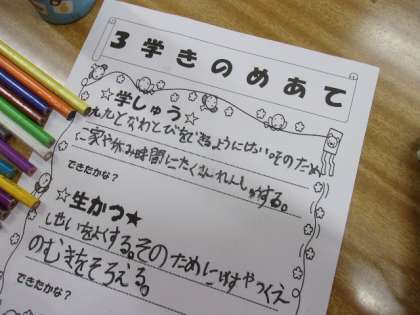 3学きのめあて
☆学しゅう☆
なわとびをできるようにしたい。そのため
に家や休み時間にたくさんれんしゅうする。
できたかな?
☆生かつ★
しせいをよくする。そのためにいすやつくえ
のむきをそろえる。
できたかな?